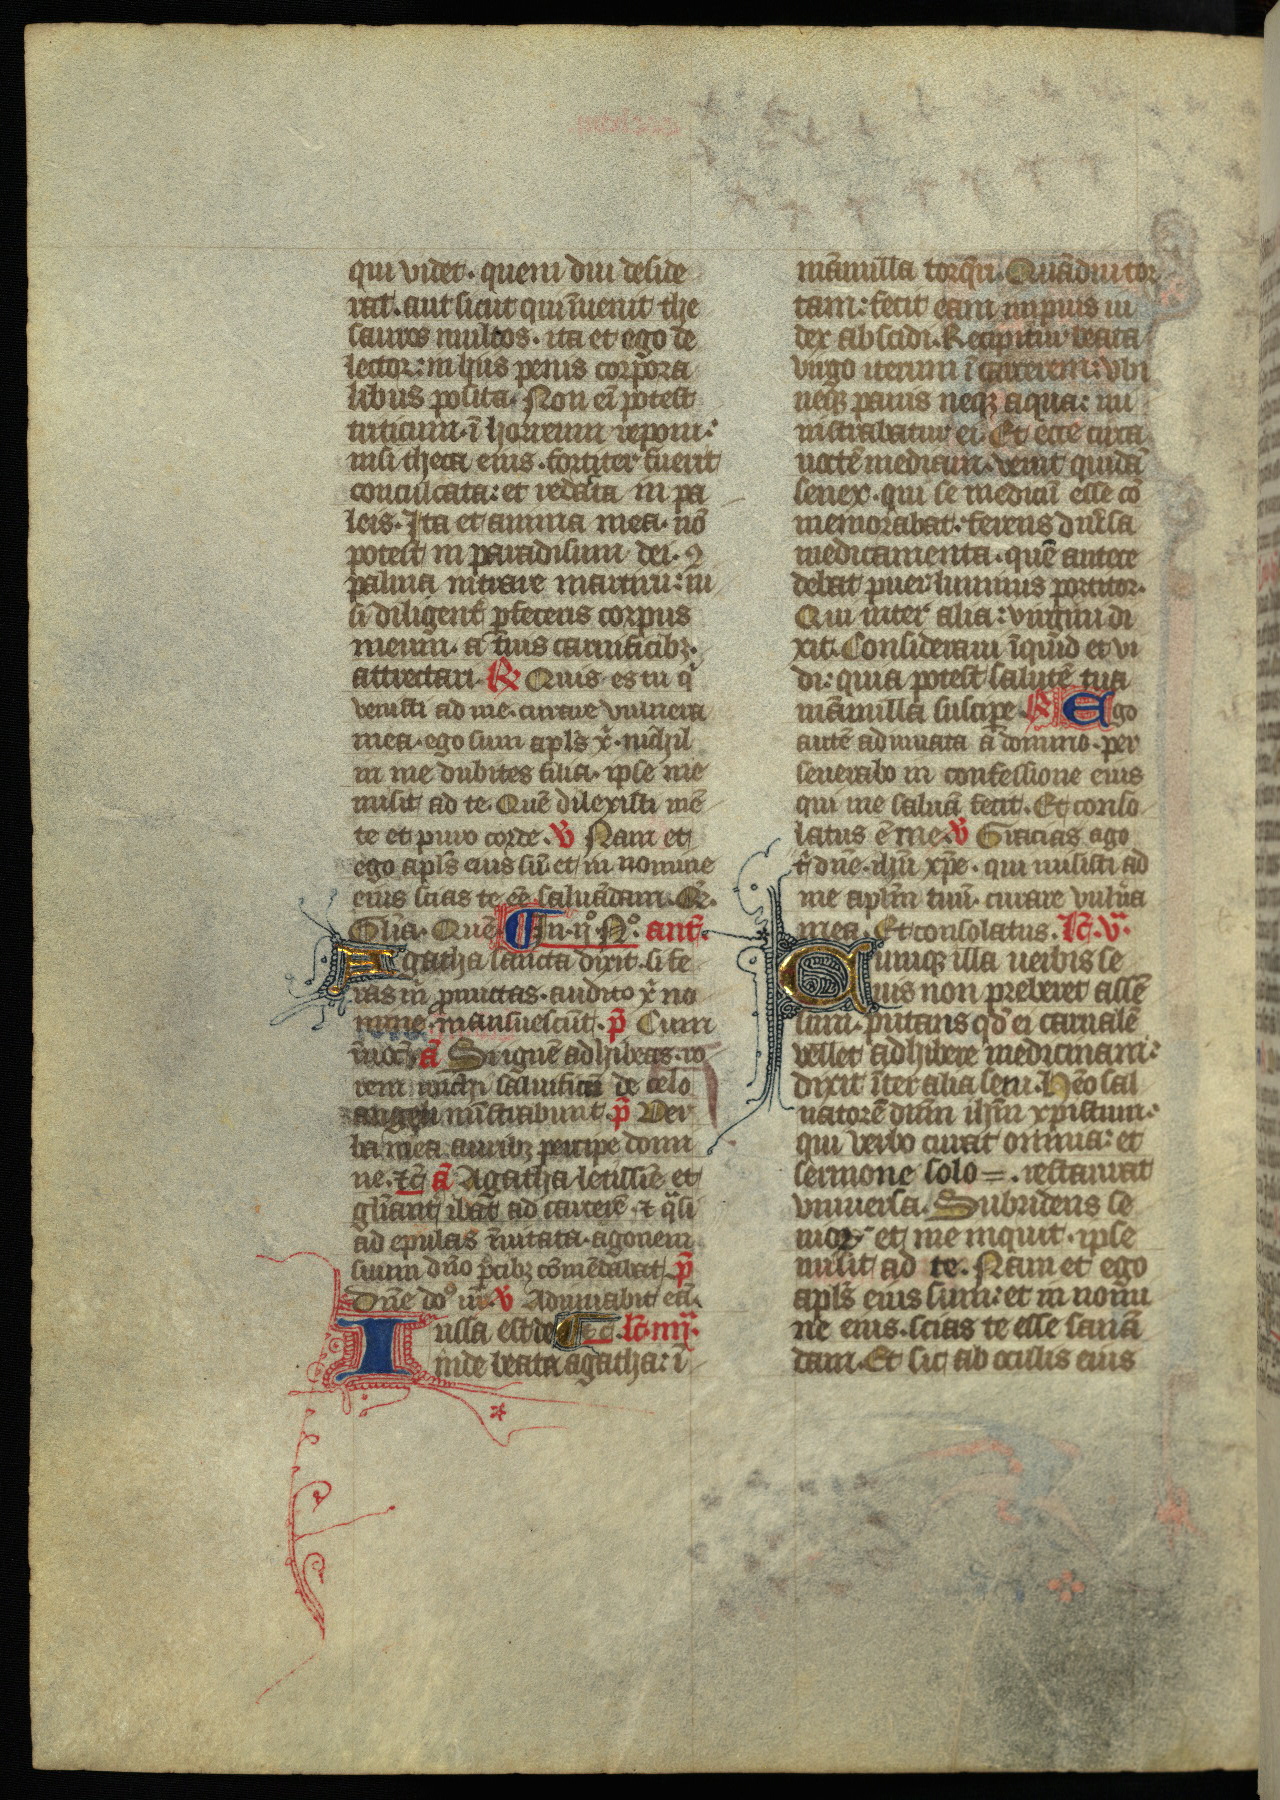 qui videt. quem diu deside
rat. aut sicut qui īuenit the
sauros multos. ita et ego de
lector: in hiis penis corp̄ora
libus posita. Non eī potest
triticum. ī horreum reponi:
nisi theca eius. fortiter fuerit
conculcata: et redacta in pa
leis. Ita et anima mea. nō
potest in paradisum dei. 9
palma intrare martirii: ni
si diligent̄ p̄feceris corpus
meum. a t̄uis carnificibꝫ.
attrectari. R̸ Quis es tu q̄
venisti ad me. curare vulnera
mea. ego sum apl̄s x̄. nichil
in me dubites filia. ipse me
misit ad te. Quē dilexisti mē
te et puro corde. v̄ Nam et
ego apl̄s eius sū et in nomine
eius scias te eē saluādam. Q̄.
Gl̄ia. Quē. In. ijº. Nº. ant̄.
Agatha sancta dixit. si fe
ras m̄ p̄mittas. audito x̄ no
mine. mansuescūt. p̄ Cum
īuoc̄. ā Si ignē adhibeas. ro
rem michi saluificū de celo
angeli mīstrabunt. p̄ Ver
ba mea auribꝫ percipe domi
ne. ⁊c̄ ā Agatha letissīe et
gl̄iant̄ ibat ad carcerē. ⁊ q̄si
ad epulas īuitata. agonem
suum dn̄o p̄cibꝫ cōmēdabat. p̄
Dn̄e doº nr̄. v̄ Adiuuabit eā.
Iussa est de Tc̄. lc̄. iiij.
inde beata agatha: ī
māmilla torq̄ri. Quādiu tor
tam: fecit eam impius iu
dex abscidi. Recipitur beata
virgo iterum ī carcerem: vbi
neqꝫ panis neqꝫ aqua: mi
nistrabatur ei. Et ecce circa
noctē mediam. venit quidā
senex. qui se medicū esse cō
memorabat. ferens diuersa
medicamenta. quē antece
debat puer luminis portitor.
Qui inter alia: virgini di
xit. Consideraui īquid et vi
di: quia potest salutē tua
māmilla suscipe. R̸ Ego
autē adiuuata a domino. per
seuerabo in confessione eius
qui me saluā fecit. Et conso
latus ē me. v̄ Gracias ago
t̄ dn̄e ih̄u xp̄e. qui misisti ad
me apl̄m tuū. curare vuln̄a
mea. Et consolatus. lc̄. v̄.
Cumqꝫ illa uerbis se
nis non preberet assē
sum. putans qd̄ ei carnalē
vellet adhibere medicinam:
dixit īter alia seni. Hēo sal
uatorē dn̄m ih̄m xpistum.
qui verbo curat omnia: et
sermone solo =. restaurat
vniuersa. Subridens se
nior et me inquit. ipse
misit ad te. Nam et ego
apl̄s eius sum: et in nomi
ne eius. scias te esse sanā
dam. Et sic ab oculis eius